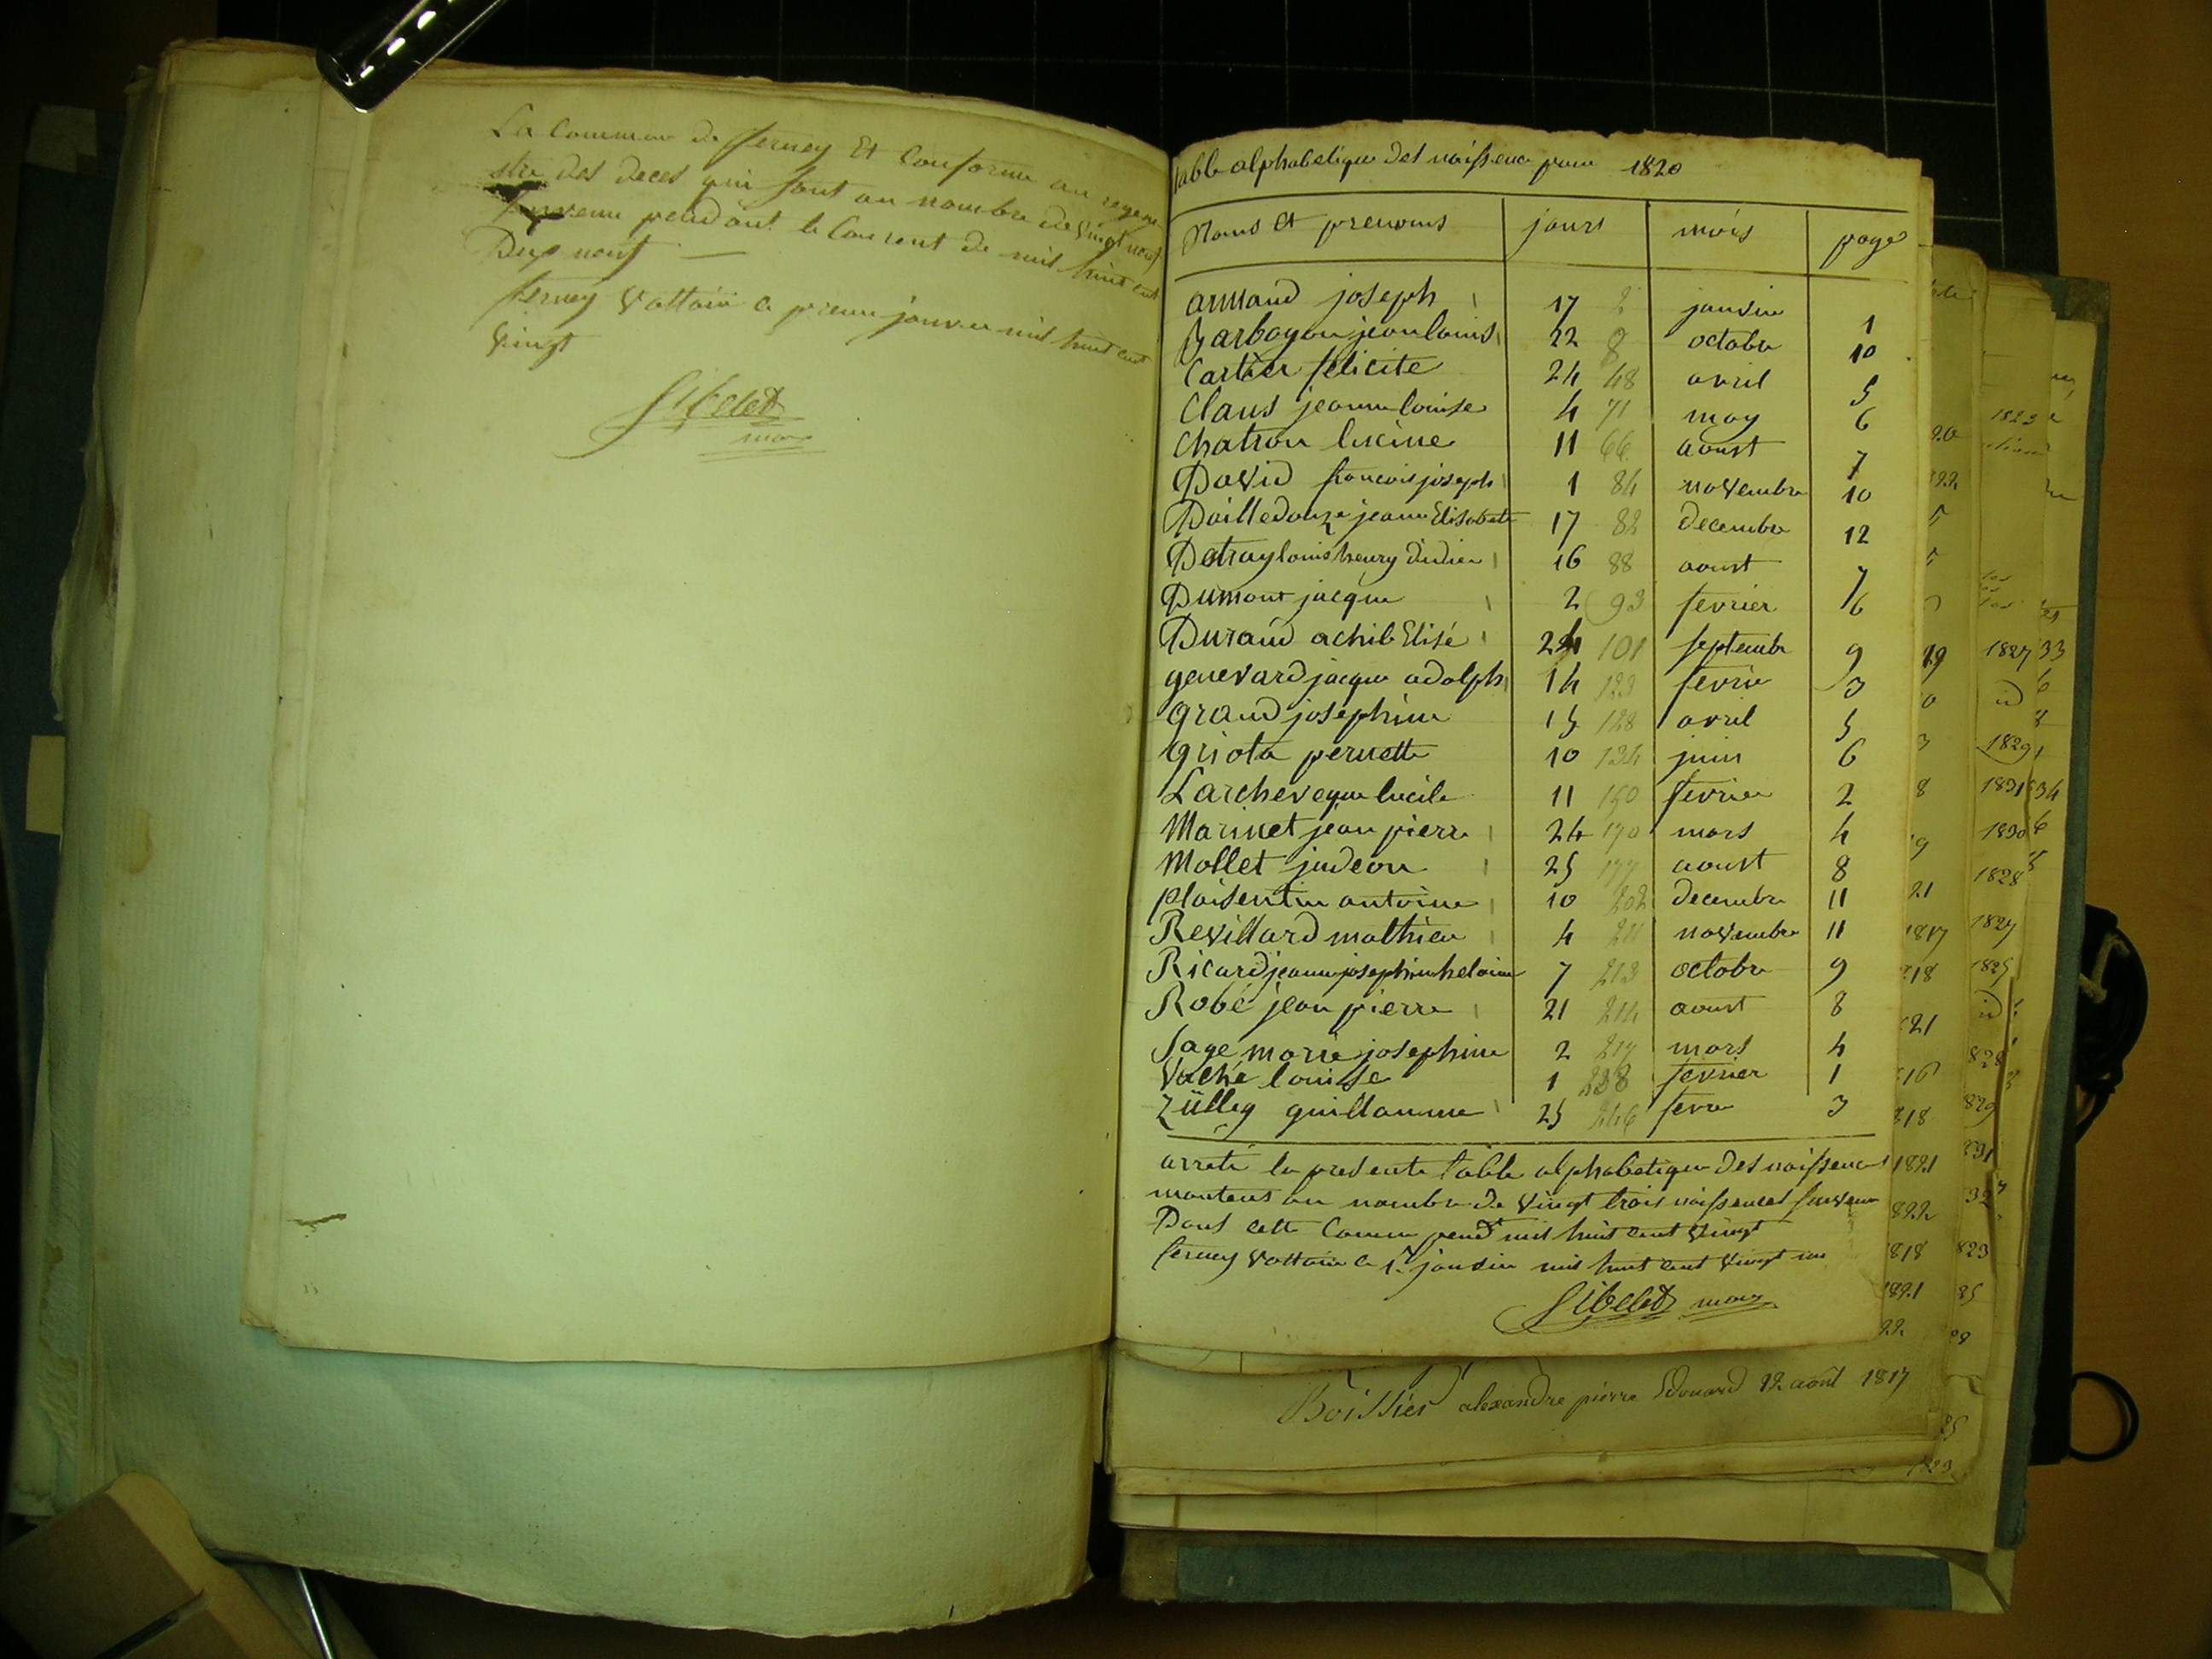 La Commune de ferney Et Conforme au regene
stre des deces qui sont au nombre de vingt neuf
Survenu pendant le Courent de mil huit cent
Dix neuf —
ferney Voltaire ce premier janvier mil huit cent
Vingt
Sibelet
maire
table alphabetique des naissence pour 1820
Noms et prenoms jours mois page
armand joseph 17 2 janvier 1
Barboyon jean louis 22 8 octobre 10
Cartier felicite 24 48 avril 5
Claus jeanne louise 4 71 may 6
Chatron lucine 11 66 aoust 7
David francois joseph 1 84 novembre 10
Dailledouze jeanne Elisabete 17 82 decembre 12
Detray louis henry didier 16 88 aoust 7
Dumont jacque 2 93 fevrier 1/6
Durand achile Elisé 24 101 septembre 9
genevard jacque adolph 14 123 fevrier 3
grand josephine 15 128 avril 5
griota pernette 10 134 juin 6
Larcheveque lucile 11 150 fevrier 2
Marinet jean pierre 24 170 mars 4
Mollet judeon 25 177 aoust 8
plaisentin antoine 10 202 decembre 11
Revillard mathieu 4 211 novembre 11
Ricard jeanne josephine heloine 7 213 octobre 9
Robé jean pierre 21 214 aoust 8
Sage marie josephine 2 217 mars 4
Vaché louise 1 238 fevrier 1
Zülleg guillaume 25 246 fevr 3
arreté la presente table alphabetique des naissences
montent au nombre de vingt trois naissences survenu
Dans cette Commune pend.t mil huit cent vingt
ferney Voltaire ce 1.r janvier mil huit cent vingt un
Sibelet maire
Boissier alexandre pierre Edouard 12 août 1817